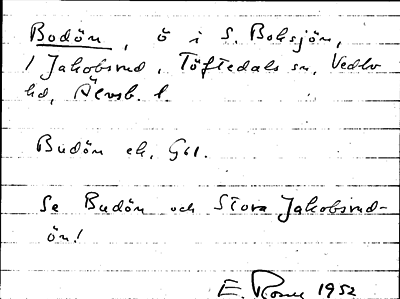 Bodön, ö i S. Boksjön,
/ Jakobsrud, Töftedals sn, Vedbo
hd, Älvsb. l
Budön ek, G61.
Se Budön och Stora Jakobsrud-
ön!
E. 1952